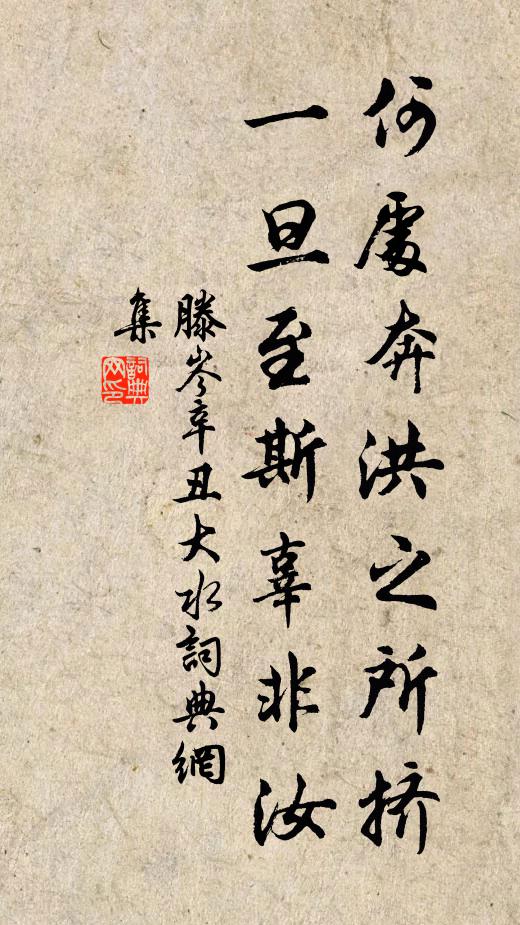 何處奔洪之所挤
一旦至斯辜非汝
滕岑辛丑大水詞典網
集
詞典网印